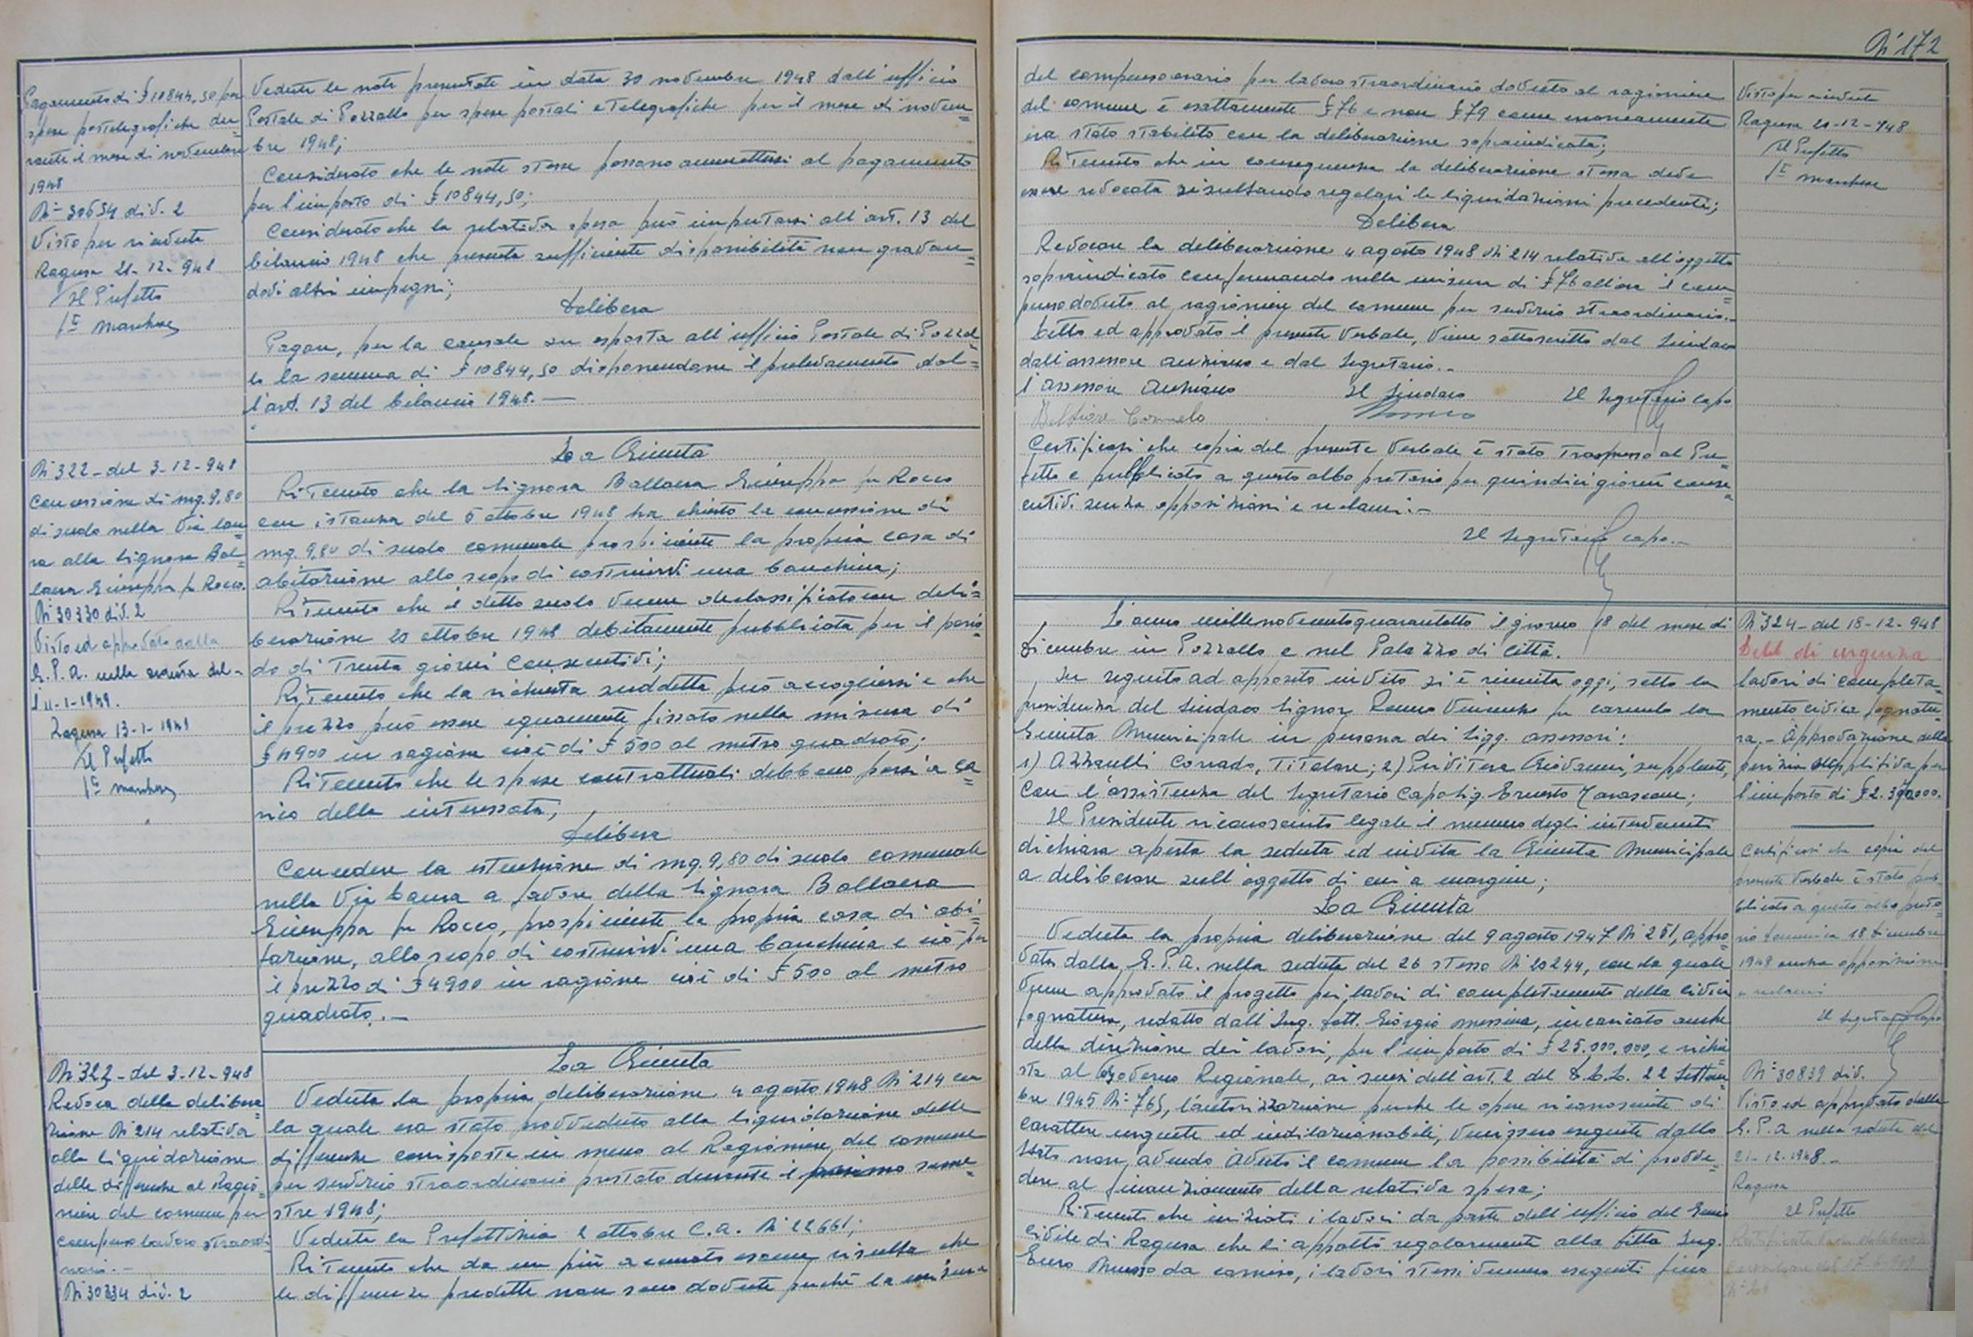 Pagamento di £ 10844,50 per
spese postelegrafiche du=
rante il mese di novembre
1948
N° 30654 div. 2
Visto per ricevuta
Ragusa 21-12-948
Il Prefetto
Vedute le note presentate in data 30 novembre 1948 dall'ufficio
Postale di Pozzallo per spese postali e telegrafiche per il mese di novem=
bre 1948;
Considerato che le note stesse possono ammettersi al pagamento
per l'importo di £ 10844,50;
Considerato che la relativa spesa può imputarsi all'art. 13 del
bilancio 1948 che presenta sufficiente disponibilità non gravan=
dovi altri impegni;
Delibera
Pagare, per la causale su esposta all'ufficio Postale di Pozzal=
lo la somma di £ 10844,50 disponendone il prelevamento dal=
l'art. 13 del bilancio 1948.—
N° 322 - del 3-12-948
Concessione di mq. 9,80
di suolo nella Via Cau=
na alla Signora Bal=
laera Giuseppa fu Rocco.
N° 30330 div. 2
Visto ed approvato dalla
G.P.A. nella seduta del=
l'11-1-1949.
Ragusa 13-1-1949
Il Prefetto
La Giunta
Ritenuto che la Signora Ballaera Giuseppa fu Rocco
con istanza del 5 ottobre 1948 ha chiesto la concessione di
mq. 9,80 di suolo comunale prospiciente la propria casa di
abitazione allo scopo di costruirvi una banchina;
Ritenuto che il detto suolo venne declassificato con deli=
berazione 20 ottobre 1948 debitamente pubblicata per il perio=
do di trenta giorni consecutivi;
Ritenuto che la richiesta suddetta può accogliersi e che
il prezzo può essere equamente fissato nella misura di
£ 4900 in ragione cioè di £ 500 al metro quadrato;
Ritenuto che le spese contrattuali debbano porsi a ca=
rico della interessata,
Delibera
Concedere la estensione di mq. 9,80 di suolo comunale
nella Via a favore della Signora Ballaera
Giuseppa fu Rocco, prospiciente la propria casa di abi=
tazione, allo scopo di costruirvi una banchina e ciò per
il prezzo di £ 4900 in ragione cioè di £ 500 al metro
quadrato.—
N° 323 - del 3-12-948
Revoca della delibera=
zione N° 214 relativa
alla liquidazione
delle differenze al Ragio=
niere del comune per
compenso lavoro straordi
nario.—
N° 30334 div. 2
La Giunta
Veduta la propria deliberazione 4 agosto 1948 N° 214 con
la quale era stato provveduto alla liquidazione delle
differenze corrisposte in meno al Ragioniere del comune
per servizio straordinario prestato durante il primo seme=
stre 1948;
Veduta la Prefettizia 2 ottobre C.A. N° 22661;
Ritenuto che da un più accurato esame risulta che
le differenze predette non sono dovute perché la misura
N° 172
del compenso orario per lavoro straordinario dovuto al ragioniere
del comune è esattamente £ 76 e non £ 79 come erroneamente
era stato stabilito con la deliberazione sopraindicata;
Ritenuto che in conseguenza la deliberazione stessa deve
essere revocata risultando regolari le liquidazioni precedenti;
Delibera
Revocare la deliberazione 4 agosto 1948 N° 214 relativa all'oggetto
sopraindicato confermando nella misura di £ 76 all'ora il com=
penso dovuto al ragioniere del comune per servizio straordinario.—
Letto ed approvato il presente Verbale, viene sottoscritto dal Sindaco
dall'assessore anziano e dal Segretario.—
L'assessore anziano Il Sindaco Il Segretario capo
Certificasi che copia del presente Verbale è stato trasmesso al Pre=
fetto e pubblicato a questo albo pretorio per quindici giorni conse=
cutivi senza opposizioni e reclami.—
Il Segretario capo.—
Visto per ricevuta
Ragusa 21-12-948
Il Prefetto
L'anno millenovecentoquarantotto il giorno 18 del mese di
Dicembre in Pozzallo e nel Palazzo di Città.
In seguito ad apposito invito si è riunita oggi, sotto la
presidenza del Sindaco Signor Vincenzo fu Carmelo la
Giunta Municipale in persona dei Sigg. assessori:
1) Azzarelli Corrado, Titolare; 2) Privitera Giovanni, supplente,
Con l'assistenza del Segretario Capo Sig. Ernesto
Il Presidente riconosciuto legale il numero degli intervenuti
dichiara aperta la seduta ed invita la Giunta Municipale
a deliberare sull'oggetto di cui a margine;
La Giunta
Veduta la propria deliberazione del 9 agosto 1947 N° 251, appro=
vata dalla G.P.A. nella seduta del 26 stesso N° 20244, con la quale
venne approvato il progetto pei lavori di completamento della civica
fognatura, redatto dall'Ing. Dott. Giorgio Messina, incaricato anche
della direzione dei lavori, per l'importo di £ 25.000.000, e richie
sta al Governo Regionale, ai sensi dell'art. 2 del D.L.L. 22 Settem
bre 1945 N° 765, l'autorizzazione perché le opere riconosciute di
carattere urgente ed indilazionabili, venissero eseguite dallo
Stato non avendo avuto il comune la possibilità di provve=
dere al finanziamento della relativa spesa;
Ritenuto che iniziati i lavori da parte dell'ufficio del Genio
Civile di Ragusa che li appaltò regolarmente alla Ditta Ing.
da Comiso, i lavori stessi vennero eseguiti fino
N° 324 - del 18-12-948
Delib di urgenza
lavori di completa=
mento civica fognatu=
ra.— Approvazione della
perizia suppletiva per
l'importo di
Certificasi che copia del
presente Verbale è stato pub=
blicato a questo albo preto=
rio domenica 18 Dicembre
1948 senza opposizioni
e reclami
Il Segretario Capo
N° 30839 div.
Visto ed approvato dalla
G.P.A. nella seduta del
21-12-1948.—
Ragusa
Il Prefetto